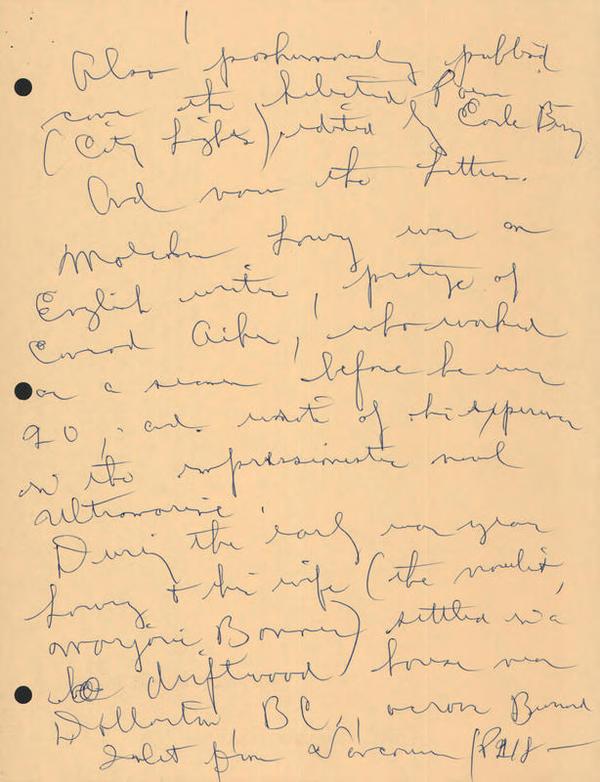 Also posthumously publish'd
came the Selected Poems
(City Lights) edited by Earle Birney
And now the letters.
Malcolm Lowry was an
English writer, protege of
Conrad Aiken, who worked
as a seaman before he was
20, and wrote of his experience
in the impressionistic novel
Ultramarine.
During the early war years
Lowry + his wife (the novelist,
Marjorie Bonner) settled in a
driftwood house near
Dollarton, BC, across Burrard
Inlet from Vancouver